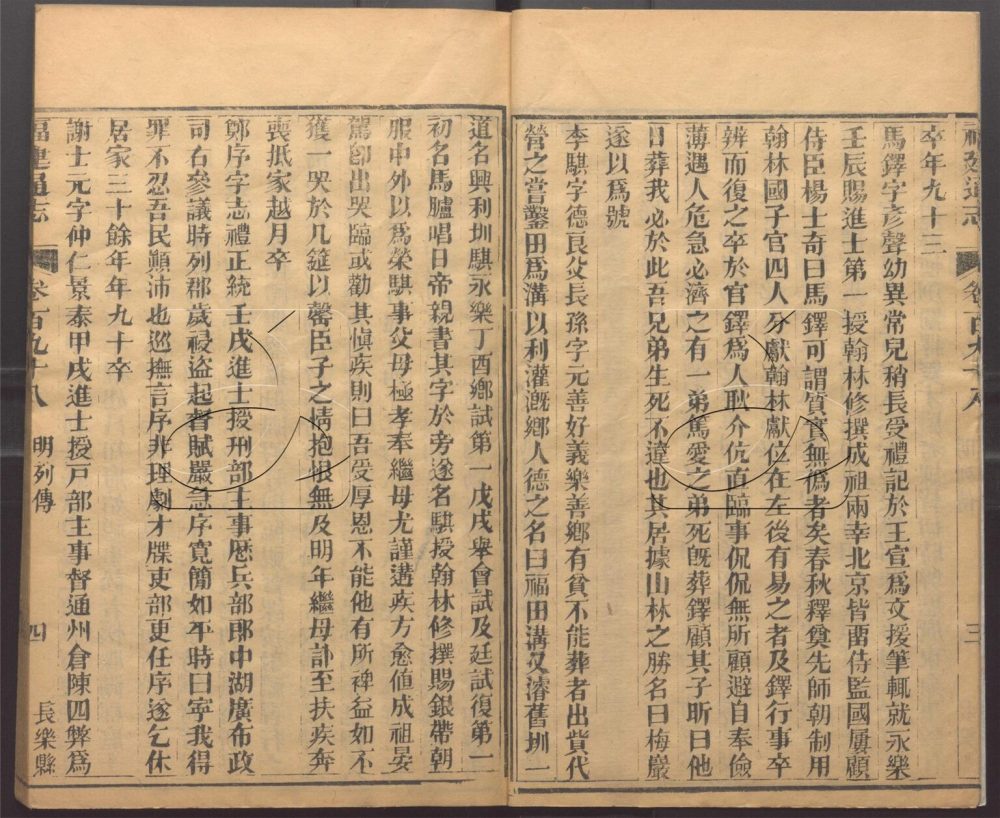 福建通志 卷百九十八 三
卒年九十三
馬鐸字彦聲幼異常兒稍長受禮記於王宣爲文援筆輒就永樂
壬辰賜進士第一授翰林修撰成祖兩幸北京皆留侍監國屢顧
侍臣楊士奇曰馬鐸可謂質實無僞者矣春秋釋奠先師朝制用
翰林國子官四人分獻翰林獻位在左後有易之者及鐸行事卒
辨而復之卒於官鐸爲人耿介伉直臨事侃侃無所顧避自奉儉
薄遇人危急必濟之有一弟篤愛之弟死旣葬鐸顧其子昕曰他
日葬我必於此吾兄弟生死不違也其居據山林之勝名曰梅巖
遂以爲號
李騏字德良父長孫字元善好義樂善鄉有貧不能葬者出貲代
營之嘗鑿田爲溝以利灌漑鄉人德之名曰福田溝又濬舊圳一
道名興利圳騏永樂丁酉鄉試第一戊戌舉會試及廷試復第一
初名馬臚唱日帝親書其字於旁遂名騏授翰林修撰賜銀帶朝
服中外以爲榮騏事父母極孝奉繼母尤謹遘疾方愈値成祖晏
駕卽出哭臨或勸其愼疾則曰吾受厚恩不能他有所裨益如不
獲一哭於几筵以罄臣子之情抱恨無及明年繼母訃至扶疾奔
喪抵家越月卒
鄭序字志禮正統壬戌進士授刑部主事歷兵部郎中湖廣布政
司右參議時列郡歲祲盜起督賦嚴急序寛簡如平時曰寜我得
罪不忍吾民顚沛也巡撫言序非理劇才牒吏部更任序遂乞休
居家三十餘年年九十卒
謝士元字仲仁景泰甲戌進士授戸部主事督通州倉陳四弊爲
福建通志 卷百九十八 明列傳 四 長樂縣